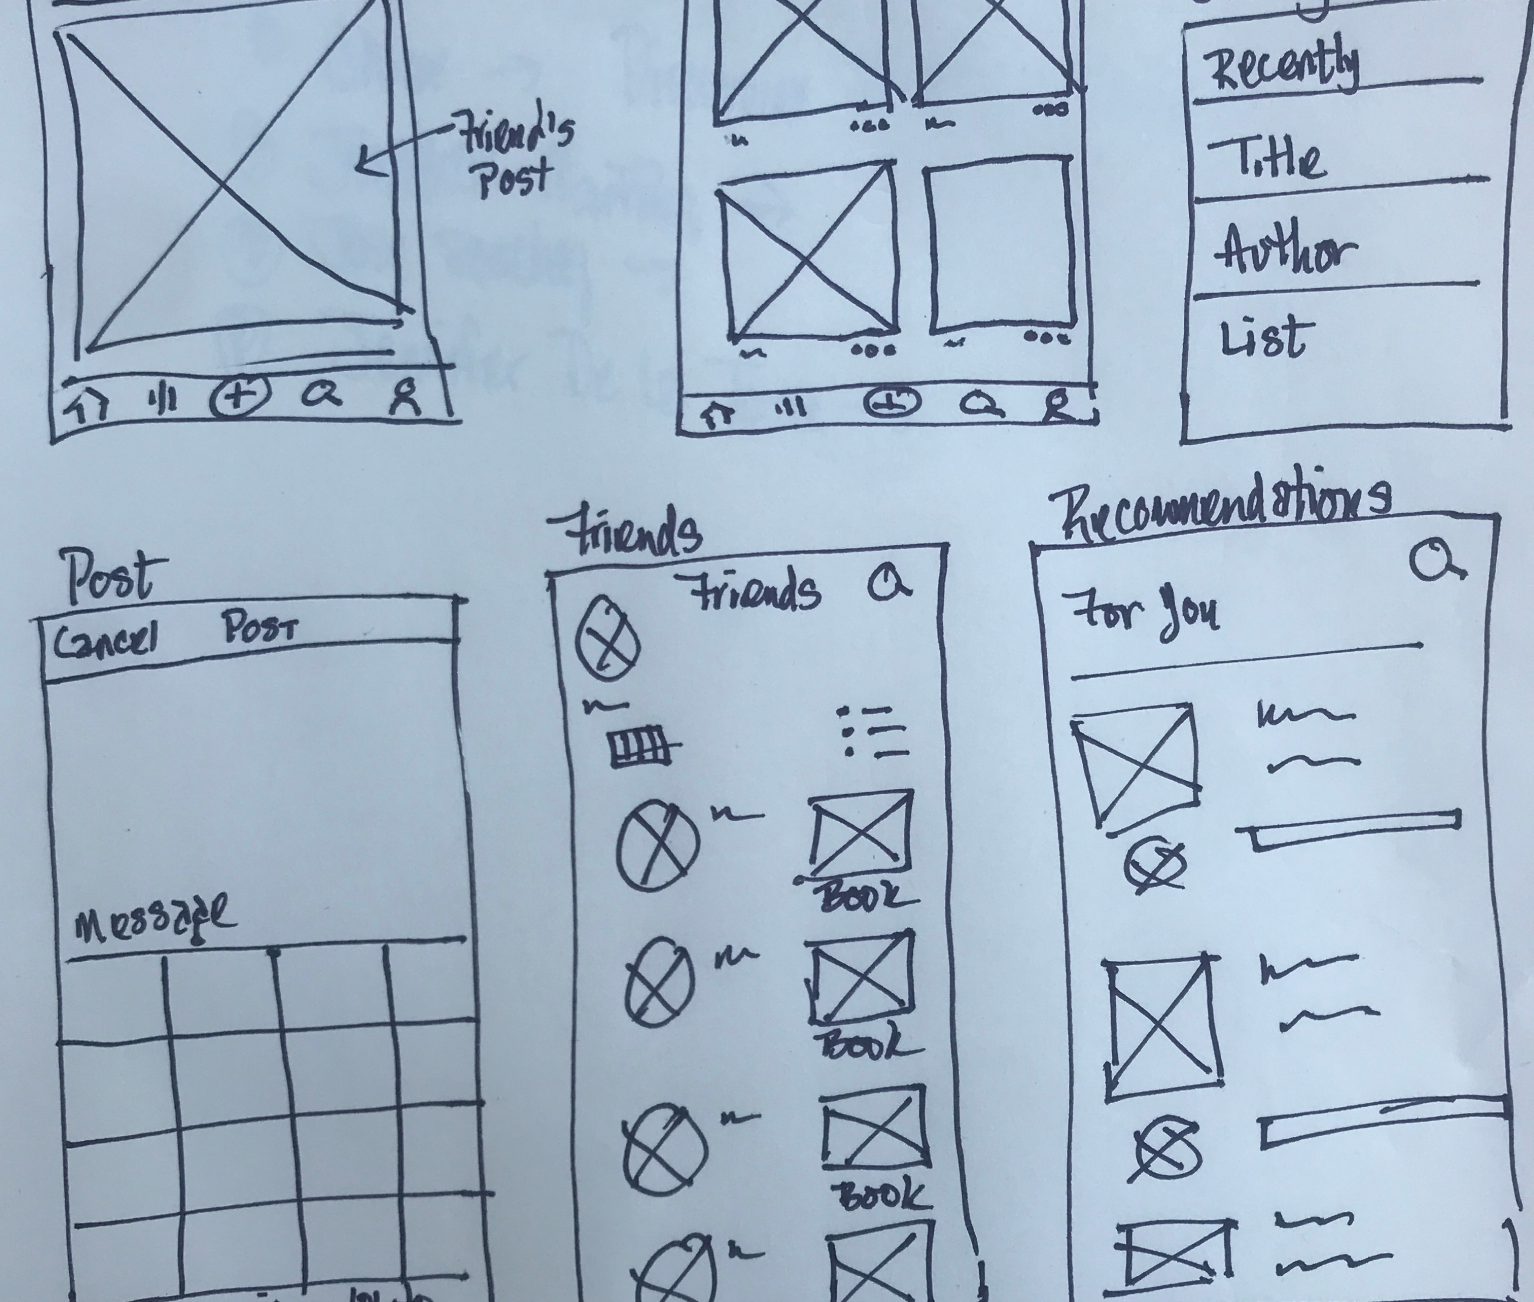 Friend's
Post
Recently
Title
Author
List
Post
Cancel Post
Message
Friends
Friends
Book
Book
Book
Recommendations
For You